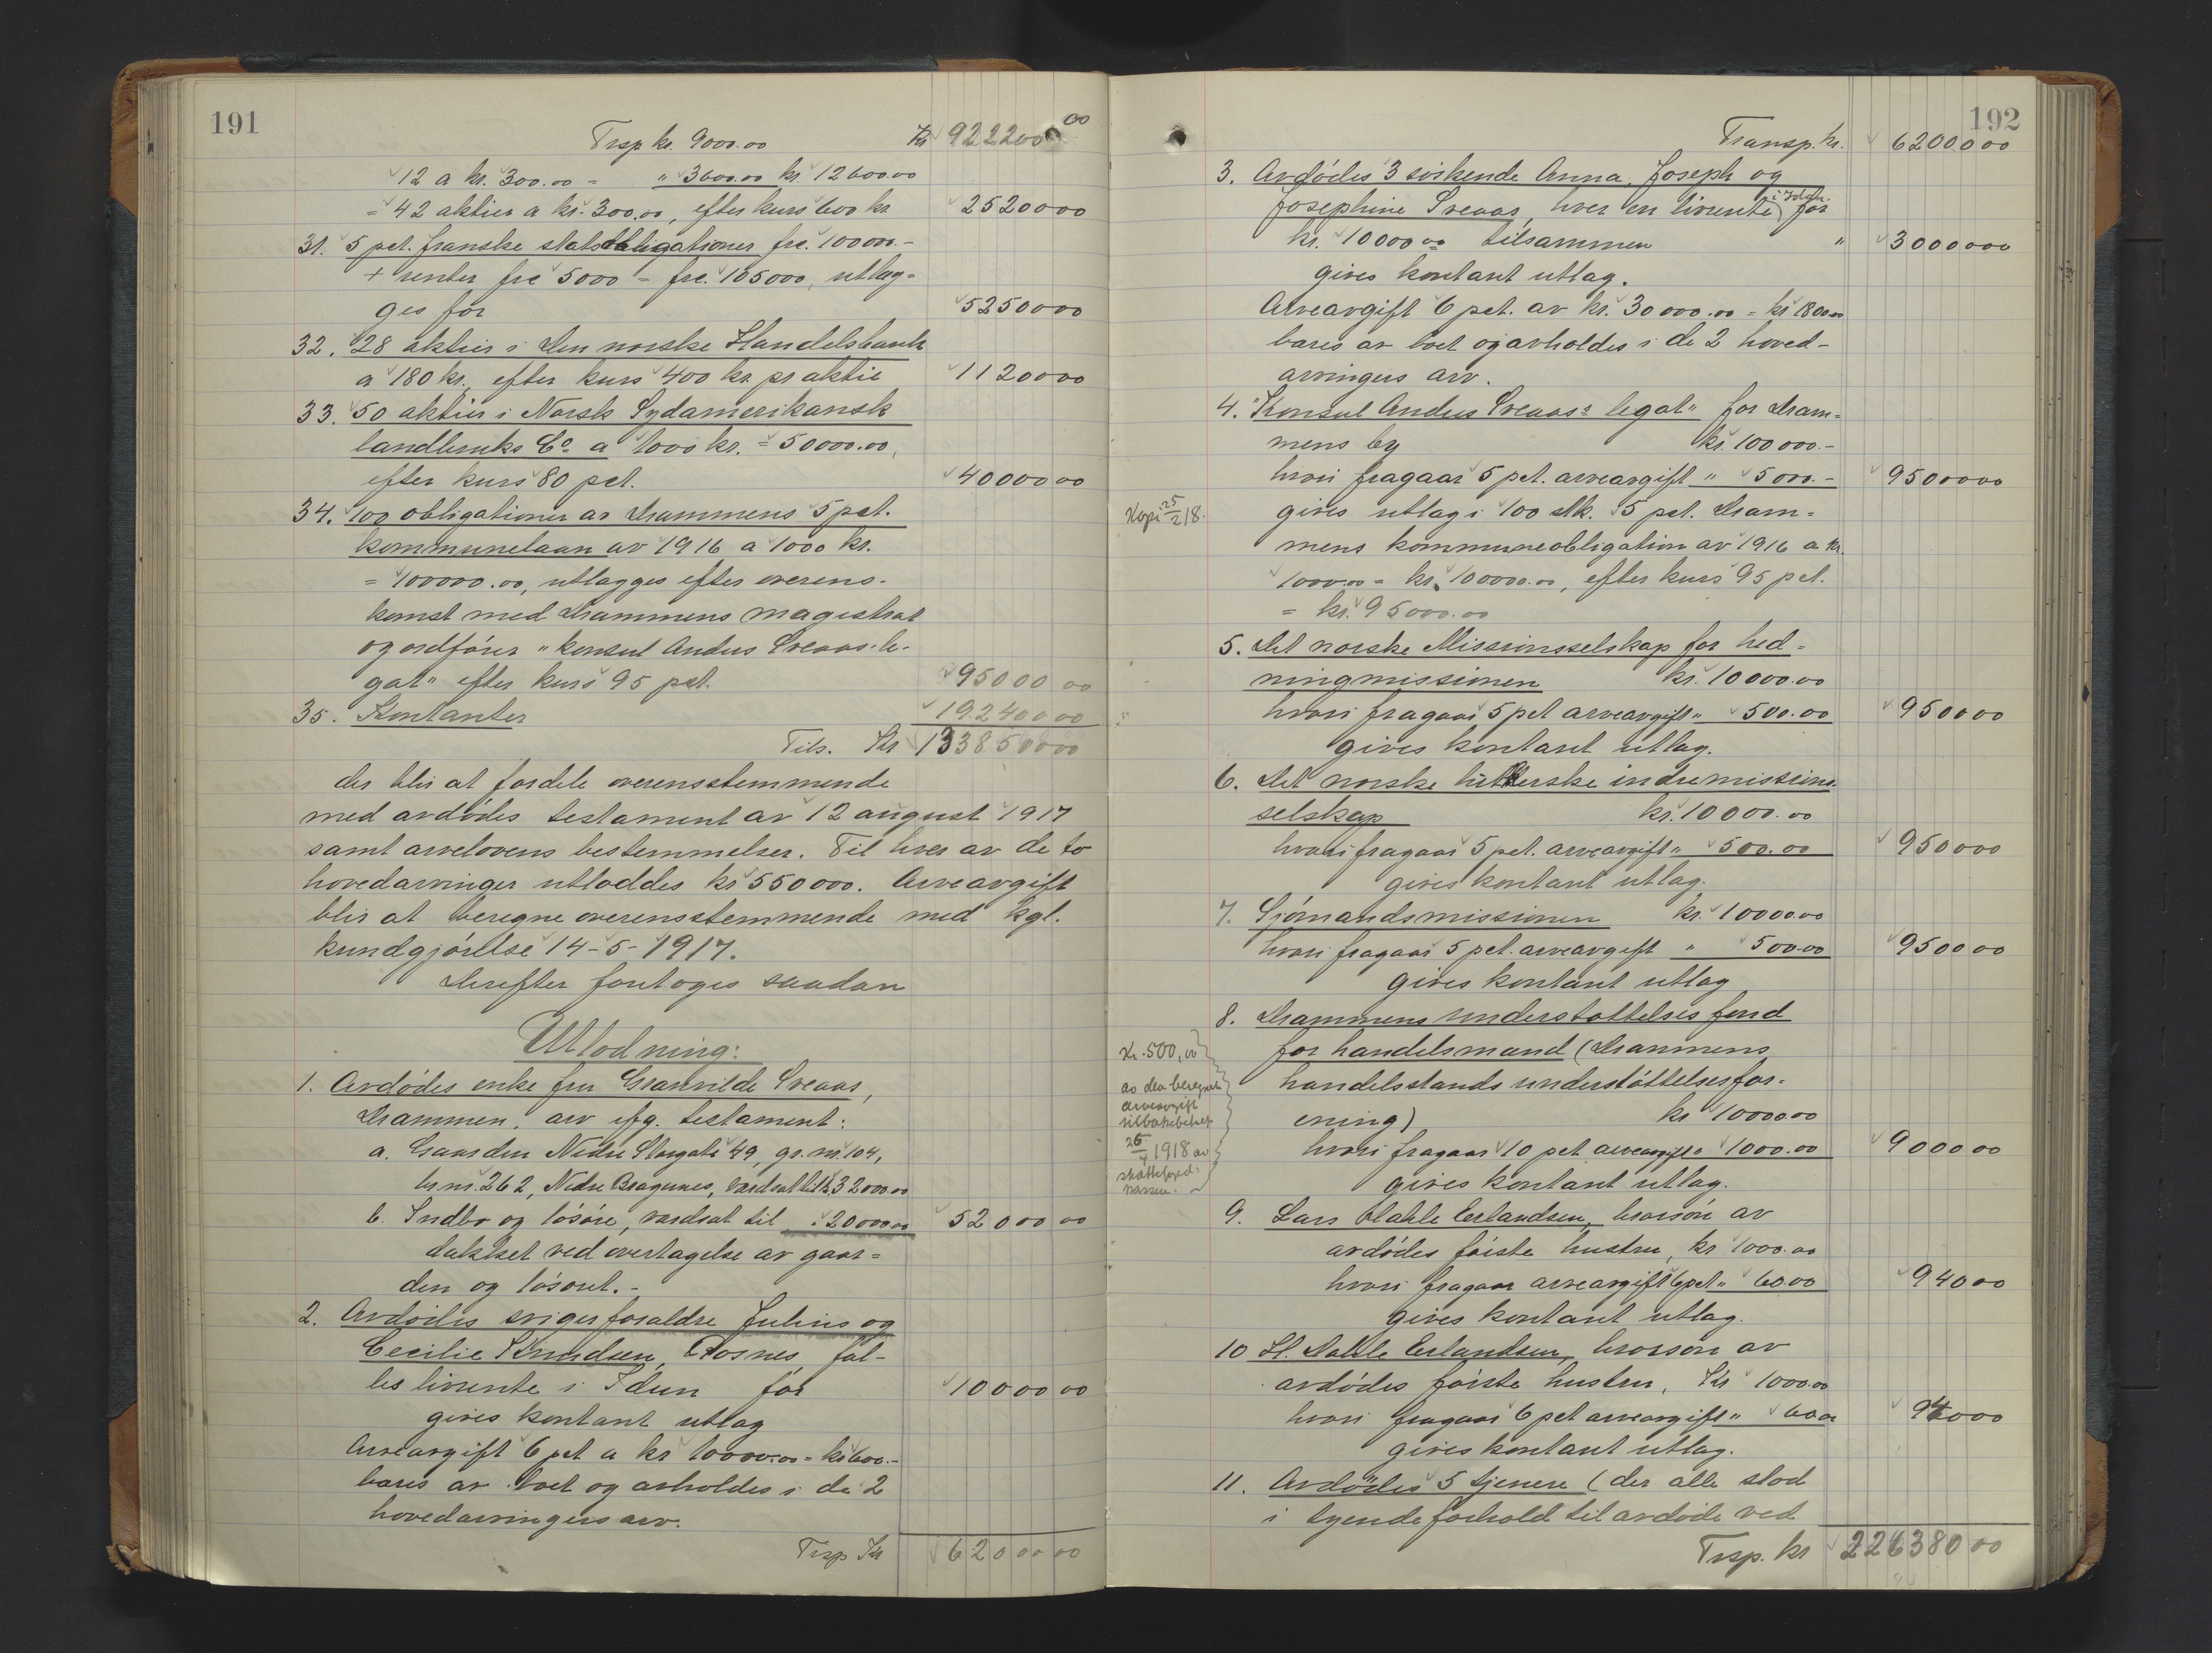 191
Trsp kr. 9000.00 Kr 922200 00
12 a kr. 300.00 = " 3600.00 kr. 12600.00
= 42 aktier a kr. 300.00, efter kurs 600 kr. 25200 00
31. 5 pct. franske statsobligationer frc. 100000.-
+ renter frc 5000 = frc. 105000, utlæg-
ges for 52500 00
32. 28 aktier i Den norske Handelsbank
a 180 kr., efter kurs 400 kr. pr aktie 11200 00
33. 50 aktier i Norsk Sydamerikansk
landbruks Co. a 1000 kr. = 50000.00,
efter kurs 80 pct. 40000 00
34. 100 obligationer av Drammens 5 pct.
kommunelaan av 1916 a 1000 kr.
= 100000.00, utlægges efter overens-
komst med Drammens magistrat
og ordfører "konsul Anders Sveaas le-
gat" efter kurs 95 pct. 95000 00
35. Kontanter 192400 00
Tils. Kr 1338500 00
der blir at fordele overensstemmende
med avdødes testament av 12 august 1917
samt arvelovens bestemmelser. Til hver av de to
hovedarvinger utloddes kr 550000. Arveavgift
blir at beregne overensstemmende med kgl.
kundgjørelse 14-5-1917.
Derefter foretoges saadan
Utlodning:
1. Avdødes enke fru Granvilde Sveaas,
Drammen, arv ifg. testament:
a. Gaarden Nedre Storgate 49, gr. nr. 104,
br.nr. 262, Nedre Bragernes, værdsat til kr. 32000.00
b. Indbo og løsøre, værdsat til " 20000.00 52000 00
dækket ved overtagelse av gaar-
den og løsøret.-
2. Avdødes svigerforældre Julius og
Cecilie Knudsen, Rosnes, fæl-
les livrente i Idun for 10000 00
gives kontant utlæg
Arveavgift 6 pct a kr 10000.00 = kr 600.-
bæres av boet og avholdes i de 2
hovedarvingers arv.
Trsp Kr 62000 00
192
Transp. kr. 62000 00
3. Avdødes 3 søskende Anna, Joseph og
Josephine Sveaas, hver en livrente i Idun for
kr. 10000.00 tilsammen " 30000 00
gives kontant utlæg.
Arveavgift 6 pct. av kr. 30000.00 = kr 1800.00
bæres av boet og avholdes i de 2 hoved-
arvingers arv.
4. "Konsul Anders Sveaas's legat" for Dram-
mens by kr. 100000.-
hvori fragaar 5 pct. arveavgift " 5000.- 95000 00
Kopi 25/2 18.
gives utlæg i 100 stk. 5 pct. Dram-
mens kommuneobligation av 1916 a kr.
1000.00 = kr. 100000.00, efter kurs 95 pct.
= kr. 95000.00
5. Det norske Missionsselskap for hed-
ningmissionen kr. 10000.00
hvori fragaar 5 pct arveavgift " 500.00 9500 00
gives kontant utlæg.
6. Det norske lutherske indremissions-
selskap kr. 10000.00
hvori fragaar 5 pct. arveavgift " 500.00 9500 00
gives kontant utlæg.
7. Sjømandsmissionen kr. 10000.00
hvori fragaar 5 pct. arveavgift " 500.00 9500 00
gives kontant utlæg
8. Drammens understøttelses fond
for handelsmænd (Drammens
handelsstands understøttelsesfor-
ening) kr 10000.00
hvori fragaar 10 pct arveavgift " 1000.00 9000 00
gives kontant utlæg.
Kr. 500,00
av den beregnede
arveavgift
tilbakebetalt
26/4 1918 av
skattefored.
kassen.
9. Lars Dahle Erlandsen, brorsøn av
avdødes første hustru, kr 1000.00
hvori fragaar arveavgift 6 pct " 60.00 940 00
gives kontant utlæg.
10 H. Dahle Erlandsen, brorsøn av
avdødes første hustru, Kr 1000.00
hvori fragaar 6 pct arveavgift " 60.00 940 00
gives kontant utlæg.
11. Avdødes 5 tjenere (der alle stod
i tyendeforhold til avdøde ved
Trsp. kr 226380 00